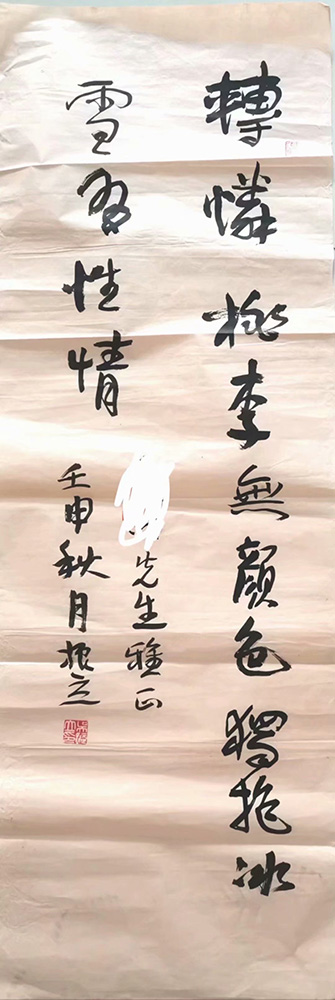 轉憐桃李無顏色獨抱冰
雪為性情
先生雅正
壬申秋月振之